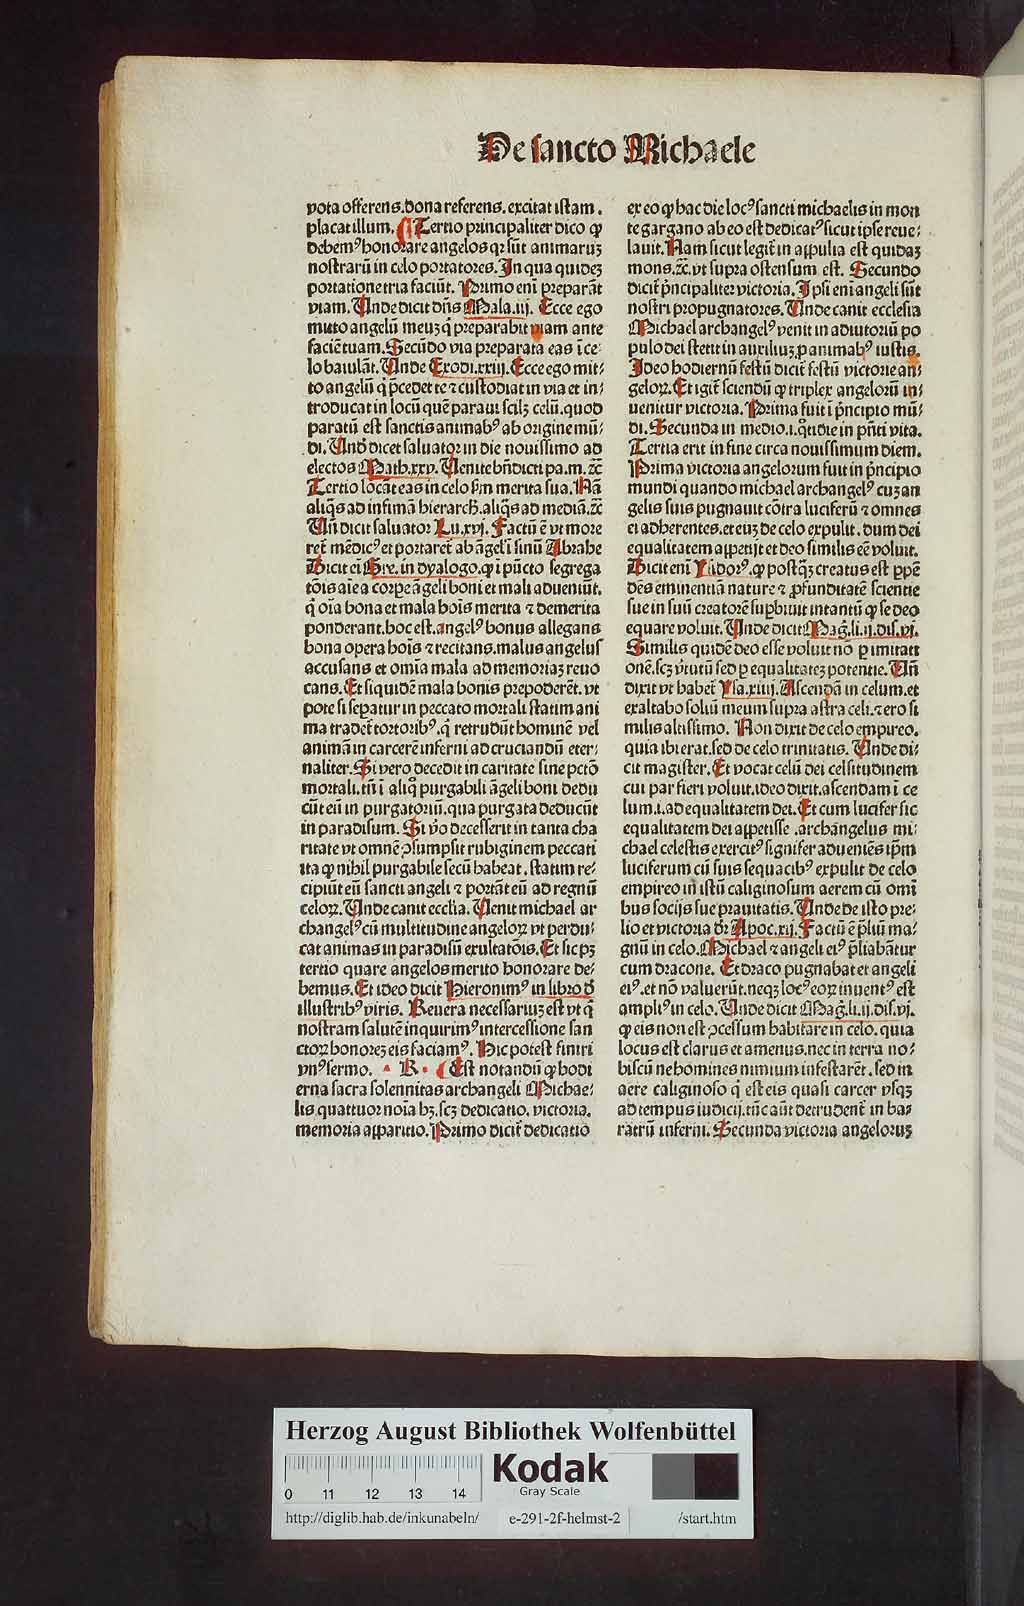 De sancto Michaele
vota offerens. dona referens. excitat istam.
placat illum. Tertio principaliter dico ꝙ
debemꝰ honorare angelos qꝛ sūt animaruꝫ
nostrarū in celo portatores. In qua quideꝫ
portatione tria faciūt. Primo eni preparāt
viam. Unde dicit dn̄s Mala.iij. Ecce ego
mitto angelū meuꝫ q̇ preparabit viam ante
faciē tuam. Secūdo via preparata eas ī ce⸗
lo baiulāt. Unde Exodi.xxiij. Ecce ego mit⸗
to angelū q̇ p̄cedet te ⁊ custodiat in via et in⸗
troducat in locū quē paraui scilꝫ celū. quod
paratū est sanctis animabꝰ ab origine mū⸗
di. Und̄ dicet saluator in die nouissimo ad
electos Math.xxv. Uenite bn̄dicti pa.m. ⁊c̄
Tertio locāt eas in celo ẜm merita sua. Nā
aliq̄s ad infimā hierarch̄. aliq̄s ad mediā. ⁊c̄
Un̄ dicit saluator Lu.xvj. Factū ē vt more
ret̄ mēdicꝰ et portaret̄ ab āgel' ī sinū Abrahe
Dicit em̄ Gre. in dyalogo. ꝙ i pūcto segrega
tōis aīe a corpe āgeli boni et mali adueniūt.
q̇ oīa bona et mala hoīs merita ⁊ demerita
ponderant. hoc est. angelꝰ bonus allegans
bona opera hoīs ⁊ recitans. malus angelus
accusans et omīa mala ad memoriaꝫ reuo
cans. Et siquidē mala bonis prepōderēt. vt
pote si sepatur in peccato mortali statim ani
ma tradet̄ tortoribꝰ. q̇ retrudūt hominē vel
animā in carcerē inferni ad cruciandū eter⸗
naliter. Si vero decedit in caritate sine pctō
mortali. tn̄ ī aliq̇ purgabili āgeli boni dedu
cūt eū in purgatoriū. qua purgata deducūt
in paradisum. Si v̊o decesserit in tanta cha
ritate vt omnē ꝯsumpsit rubiginem peccati
ita ꝙ nihil purgabile secū habeat. statim re⸗
cipiūt eū sancti angeli ⁊ portāt eū ad regnū
celoꝝ. Unde canit eccl'ia. Uenit michael ar
changelꝰ cū multitudine angeloꝝ vt perdu⸗
cat animas in paradisū exultatōis. Et sic pꝫ
tertio quare angelos merito honorare de⸗
bemus. Et ideo dicit Hieronimꝰ in libro d̄
illustribꝰ viris. Reuera necessariuꝫ est vt q̇
nostram salutē inquirimꝰ intercessione san
ctoꝝ honoreꝫ eis faciamꝰ. Hic potest finiri
vnꝰ sermo. R. Est notandū ꝙ hodi
erna sacra solennitas archangeli Michae⸗
lis quattuor noīa hꝫ. scꝫ dedicatio. victoria.
memoria apparitio. Primo dicit̄ dedicatio
ex eo ꝙ hac die locꝰ sancti michaelis in mon
te gargano ab eo est dedicatꝰ sicut ipse reue⸗
lauit. Nam sicut legit̄ in appulia est quidaꝫ
mons. ⁊c̄. vt supra ostensum est. Secundo
dicit̄ p̄ncipaliter victoria. Ipsi eni angeli sūt
nostri propugnatores. Unde canit ecclesia
Michael archangelꝰ venit in adiutoriū po
pulo dei stetit in auxiliuꝫ p animabꝰ iustis.
Ideo hodiernū festū dicit̄ festū victorie an⸗
geloꝝ. Et igit̄ sciendū ꝙ triplex angelorū in⸗
uenitur victoria. Prima fuit i p̄ncipio mū⸗
di. Secunda in medio.i. q̇tidie in pn̄ti vita.
Tertia erit in fine circa nouissimum diem.
Prima victoria angelorum fuit in p̄ncipio
mundi quando michael archangelꝰ cuꝫ an
gelis suis pugnauit cōtra luciferū ⁊ omnes
ei adherentes. et euꝫ de celo expulit. dum dei
equalitatem appetijt et deo similis eē voluit.
Dicit eni Ysidorꝰ. ꝙ postq̄ꝫ creatus est ꝑpē
dēs eminentiā nature ⁊ ꝓfunditatē scientie
sue in suū creatorē supbiuit intantū ꝙ se deo
equare voluit. Unde dicit Mag̃.li.ij.dis.vj.
Similis quidē deo esse voluit nō ꝑ imitati
onē. scꝫ v̄tutū sed ꝑ equalitateꝫ potentie. Un̄
dixit vt habet̄ Ysa.xiiij. Ascendā in celum. et
exaltabo soliū meum supra astra celi. ⁊ ero si
milis altissimo. Non dixit de celo empireo.
quia ibi erat. sed de celo trinitatis. Unde di⸗
cit magister. Et vocat celū dei celsitudinem
cui par fieri voluit. ideo dixit. ascendam ī ce
lum.i. ad equalitatem dei. Et cum lucifer sic
equalitatem dei appetisse. archāngelus mi⸗
chael celestis exercitꝰ signifer adueniēs ip̄m
luciferum cū suis sequacibꝰ expulit de celo
empireo in istū caliginosum aerem cū omī
bus socijs sue prauitatis. Unde de isto pre⸗
lio et victoria dr̄ Apoc.xij. Factū ē p̄liū ma⸗
gnū in celo. Michael ⁊ angeli eiꝰ p̄liabātur
cum dracone. Et draco pugnabat et angeli
eiꝰ. et nō valuerūt. neqꝫ locꝰ eoꝝ inuentꝰ est
ampliꝰ in celo. Unde dicit Mag̃.li.ij.dis.vj.
ꝙ eis non est ꝯcessum habitare in celo. quia
locus est clarus et amenus. nec in terra no⸗
biscū ne homines nimium infestarēt. sed in
aere caliginoso q̇ est eis quasi carcer vsqꝫ
ad tempus iudicij. tūc aūt detrudent̄ in ba⸗
ratrū inferni. Secunda victoria angeloruꝫ
Herzog August Bibliothek Wolfenbüttel
0 11 12 13 14
Kodak
Gray Scale
http://diglib.hab.de/inkunabeln/ e-291-2f-helmst-2 /start.htm